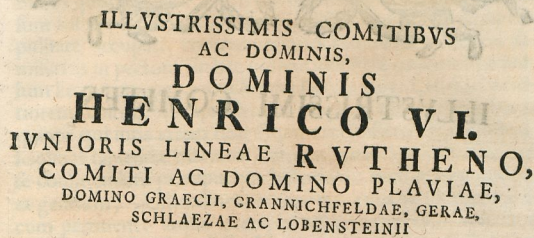 ILLVSTRISSIMIS COMITIBVS
AC DOMINIS,
DOMINIS
HENRICO VI.
IVNIORIS LINEAE RVTHENO,
COMITI AC DOMINO PLAVIAE,
DOMINO GRAECII, CRANNICHFELDAE, GERAE,
SCHLAEZAE AC LOBENSTEINII